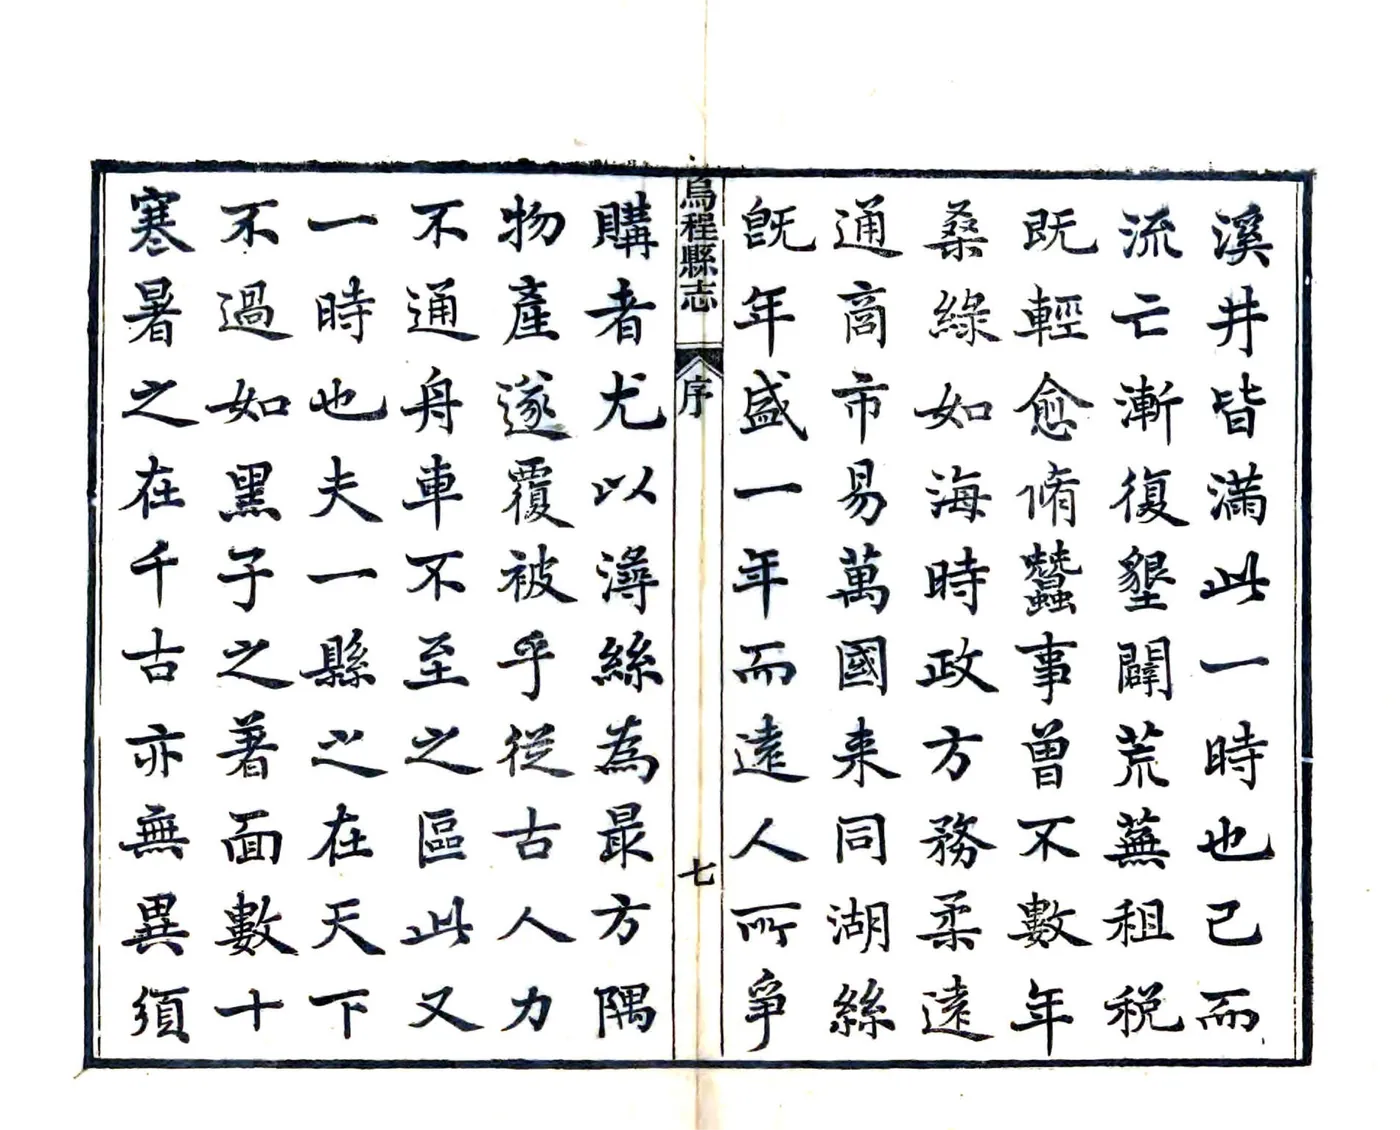 溪井皆滿此一時也已而
流亡漸復墾闢荒蕪租稅
既輕愈脩蠶事曾不數年
桑綠如海時政方務柔遠
通商市易萬國来同湖絲
旣年盛一年而遠人所爭
烏程縣志
序
七
購者尤以潯絲為最方隅
物產遂覆被乎從古人力
不通舟車不至之區此又
一時也夫一縣之在天下
不過如黑子之著面數十
寒暑之在千古亦無異須